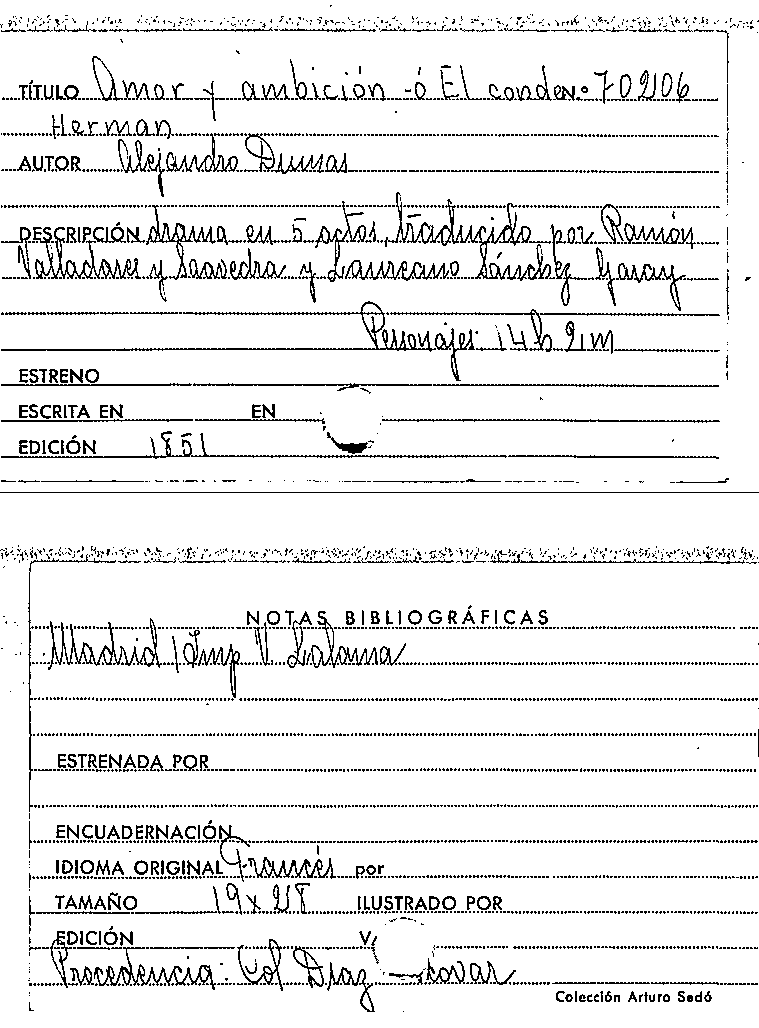 TÍTULO Amor y ambición -ó El conde N.º 70206
Herman
AUTOR Alejandro Dumas
DESCRIPCIÓN drama en 5 actos, traducido por Ramón
Valladares y Saavedra y Laureano Sánchez Garay
Personajes: 14 h 2 m
ESTRENO
ESCRITA EN EN
EDICIÓN 1851
NOTAS BIBLIOGRÁFICAS
Madrid / Imp V. Lalama
ESTRENADA POR
ENCUADERNACIÓN
IDIOMA ORIGINAL Francés por
TAMAÑO 19 x 28 ILUSTRADO POR
EDICIÓN
Procedencia: Col Diaz
Colección Arturo Sedó